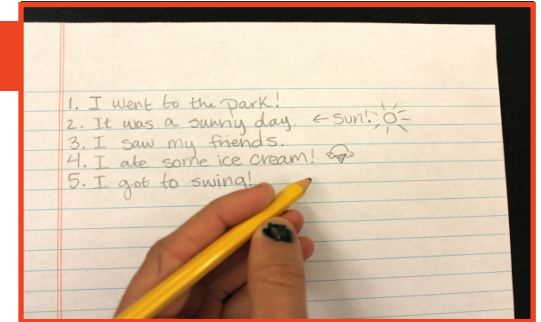 1. I went to the park!
2. It was a sunny day. ← sun!
3. I saw my friends.
4. I ate some ice cream!
5. I got to swing!